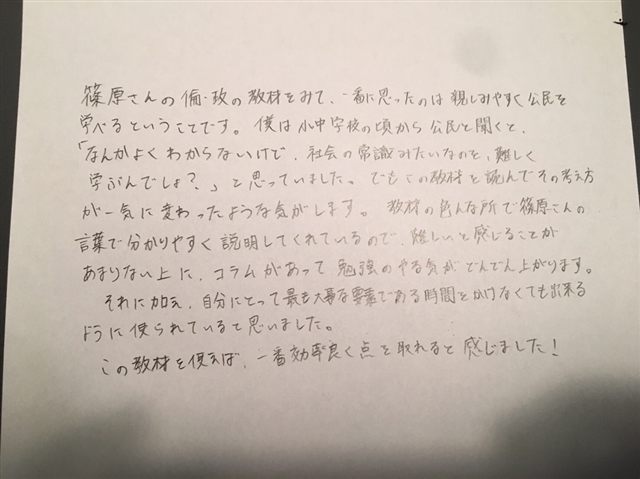 篠原さんの倫・政の教材をみて、一番に思ったのは親しみやすく公民を
学べるということです。僕は小中学校の頃から公民と聞くと、
「なんかよくわからないけど、社会の常識みたいなのを、難しく
学ぶんでしょ?」と思っていました。でもこの教材を読んでその考え方
が一気に変わったような気がします。教材の色んな所で篠原さんの
言葉で分かりやすく説明してくれているので、難しいと感じることが
あまりない上に、コラムがあって勉強のやる気がどんどん上がります。
それに加え、自分にとって最も大事な要素である時間をかけなくても出来る
ように使られていると思いました。
この教材を使えば、一番効率良く点を取れると感じました!